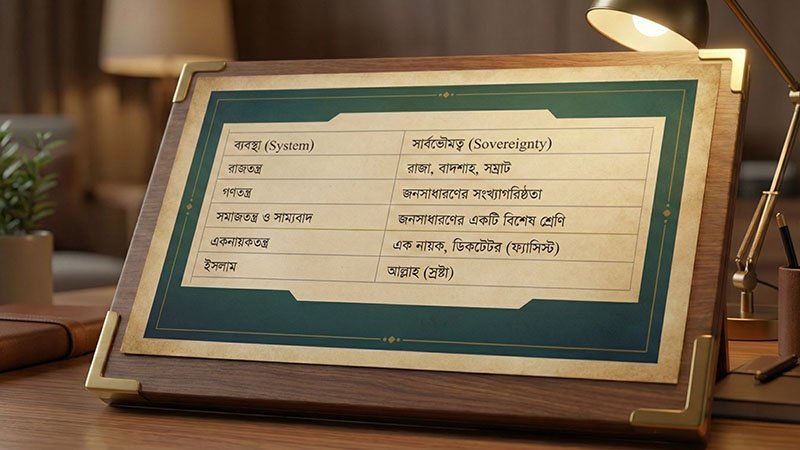 ব্যবস্থা (System) সার্বভৌমত্ব (Sovereignty)
রাজতন্ত্র রাজা, বাদশাহ, সম্রাট
গণতন্ত্র জনসাধারণের সংখ্যাগরিষ্ঠতা
সমাজতন্ত্র ও সাম্যবাদ জনসাধারণের একটি বিশেষ শ্রেণি
একনায়কতন্ত্র এক নায়ক, ডিকটেটর (ফ্যাসিস্ট)
ইসলাম আল্লাহ (স্রষ্টা)